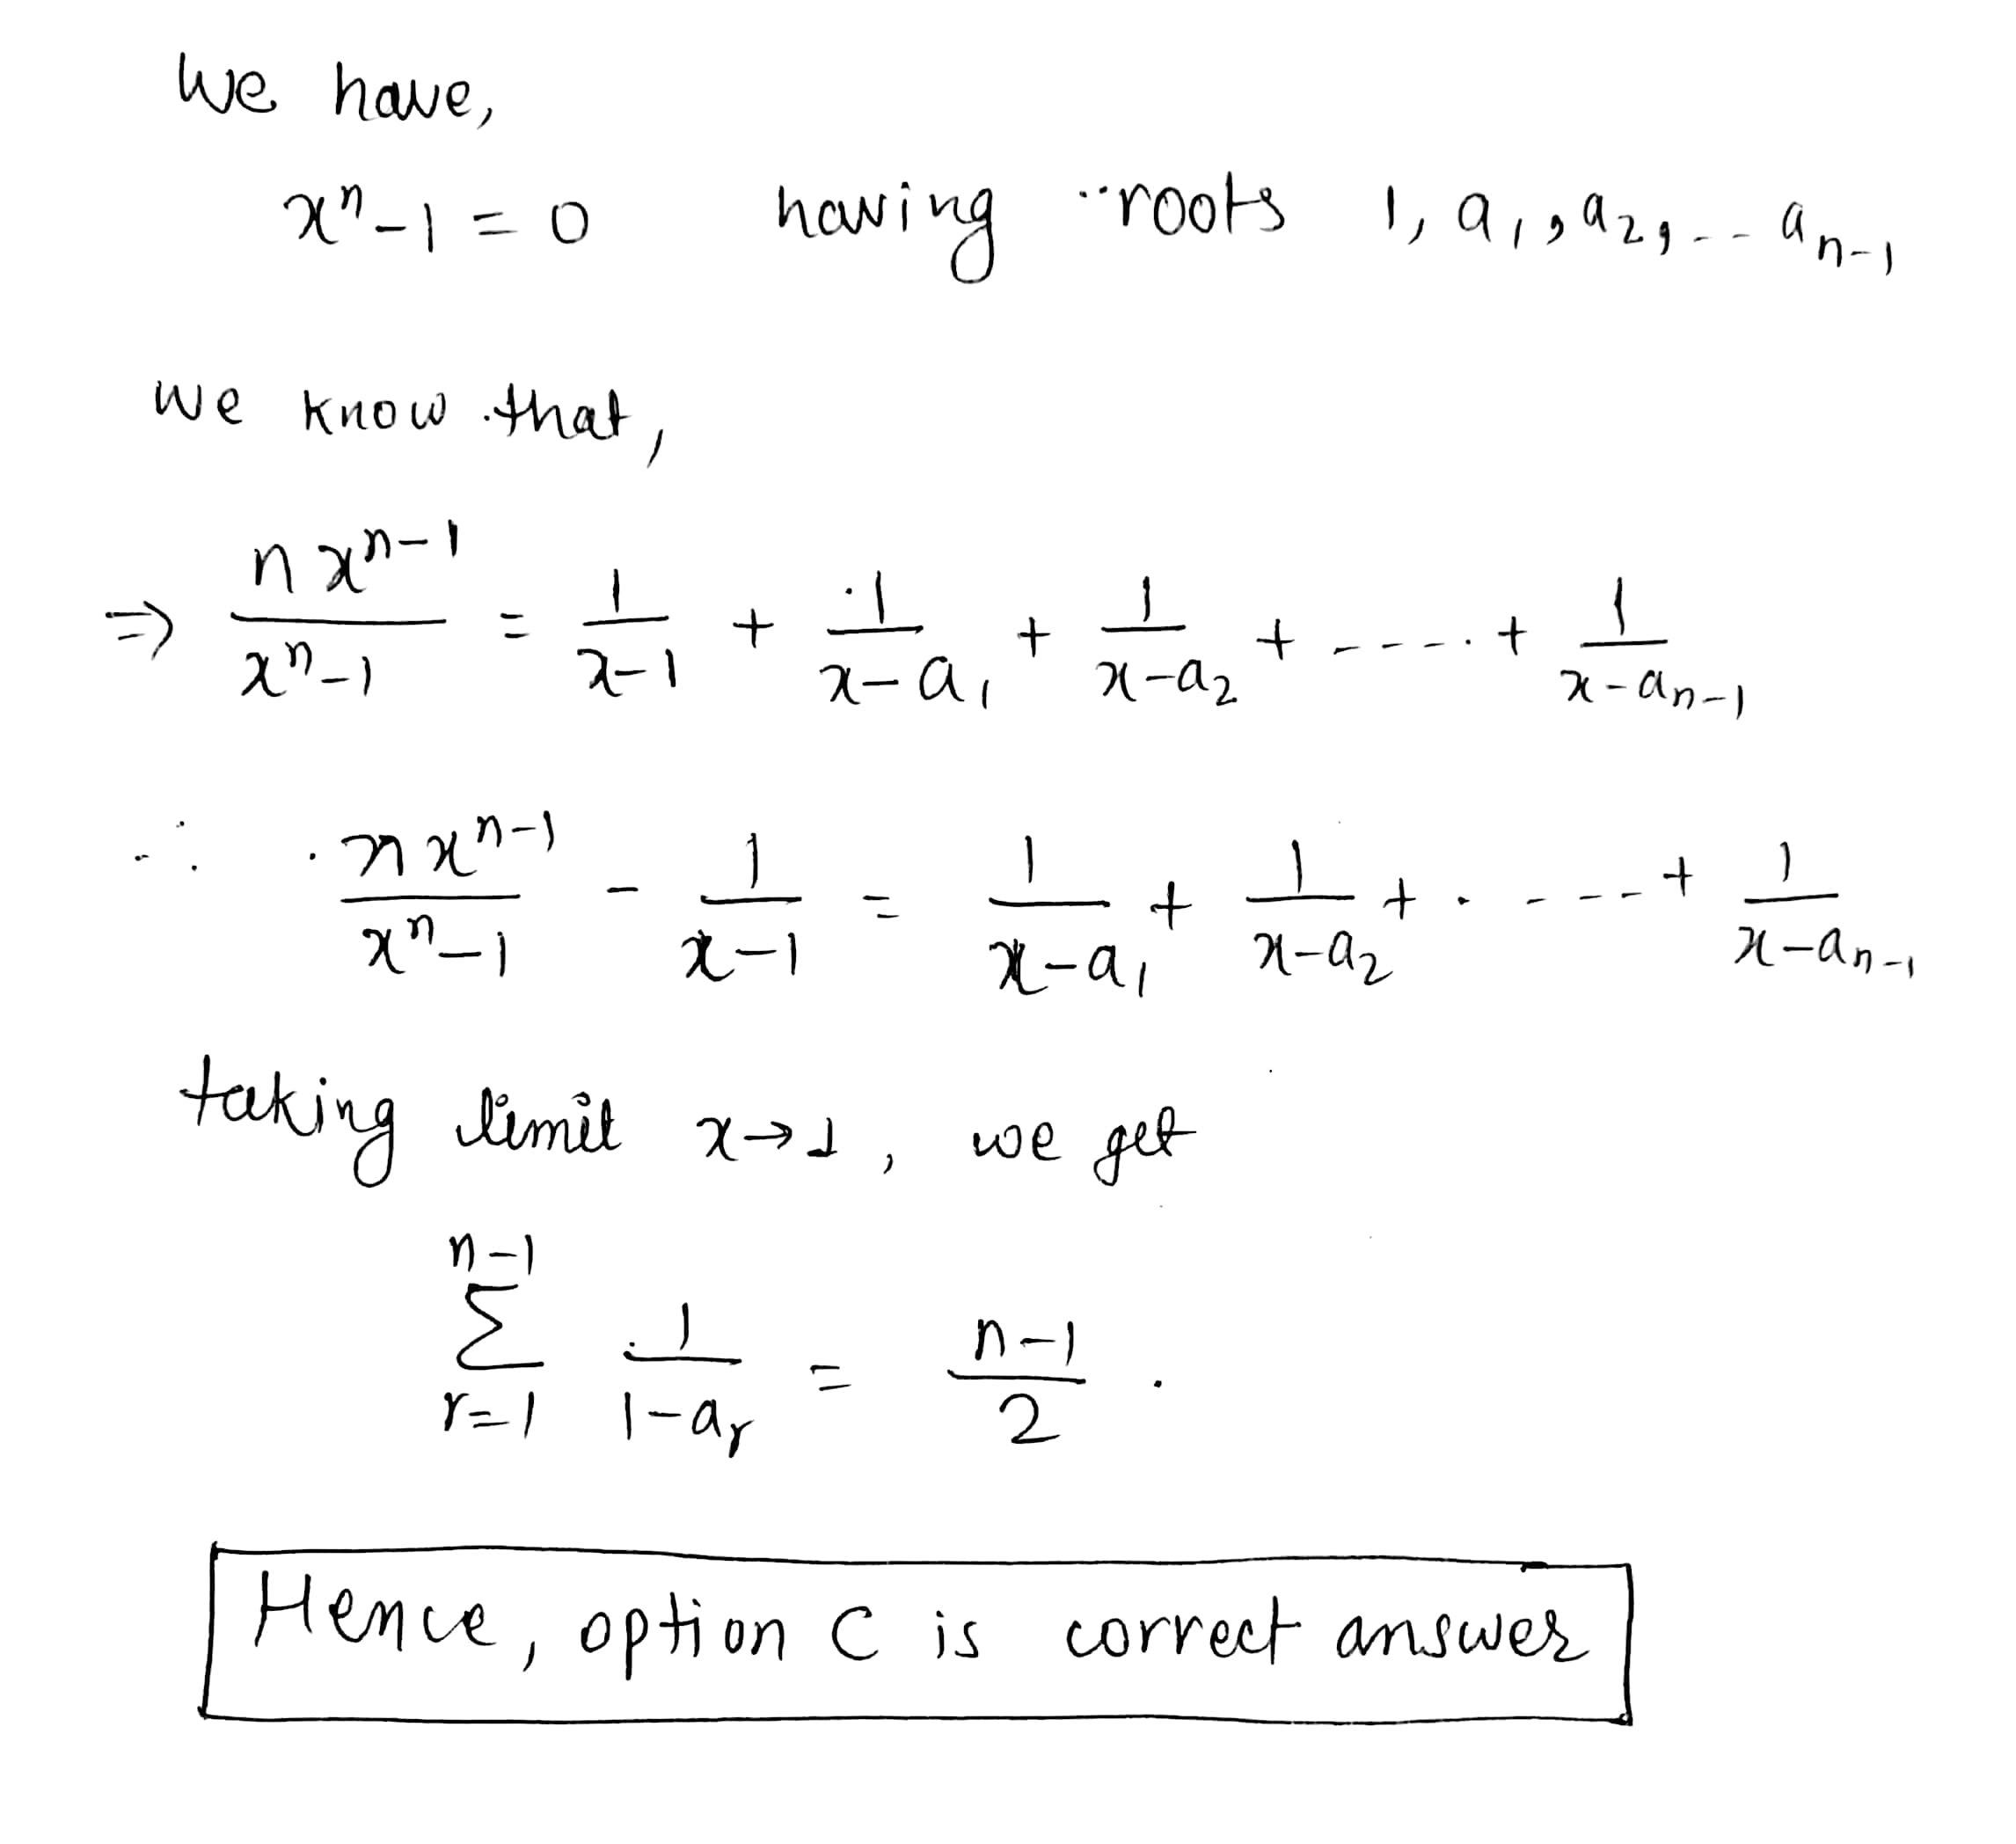 We have,
xⁿ-1 = 0 having roots 1, a₁, a₂, -- aₙ₋₁
we know that,
⇒ nxⁿ⁻¹/xⁿ-1 = 1/x-1 + 1/x-a₁ + 1/x-a₂ + ----. + 1/x-aₙ₋₁
∴ nxⁿ⁻¹/xⁿ-1 - 1/x-1 = 1/x-a₁ + 1/x-a₂ + . ---- + 1/x-aₙ₋₁
taking limit x→1, we get
n-1 Σ r=1 1/1-aᵣ = n-1/2 .
Hence, option C is correct answer